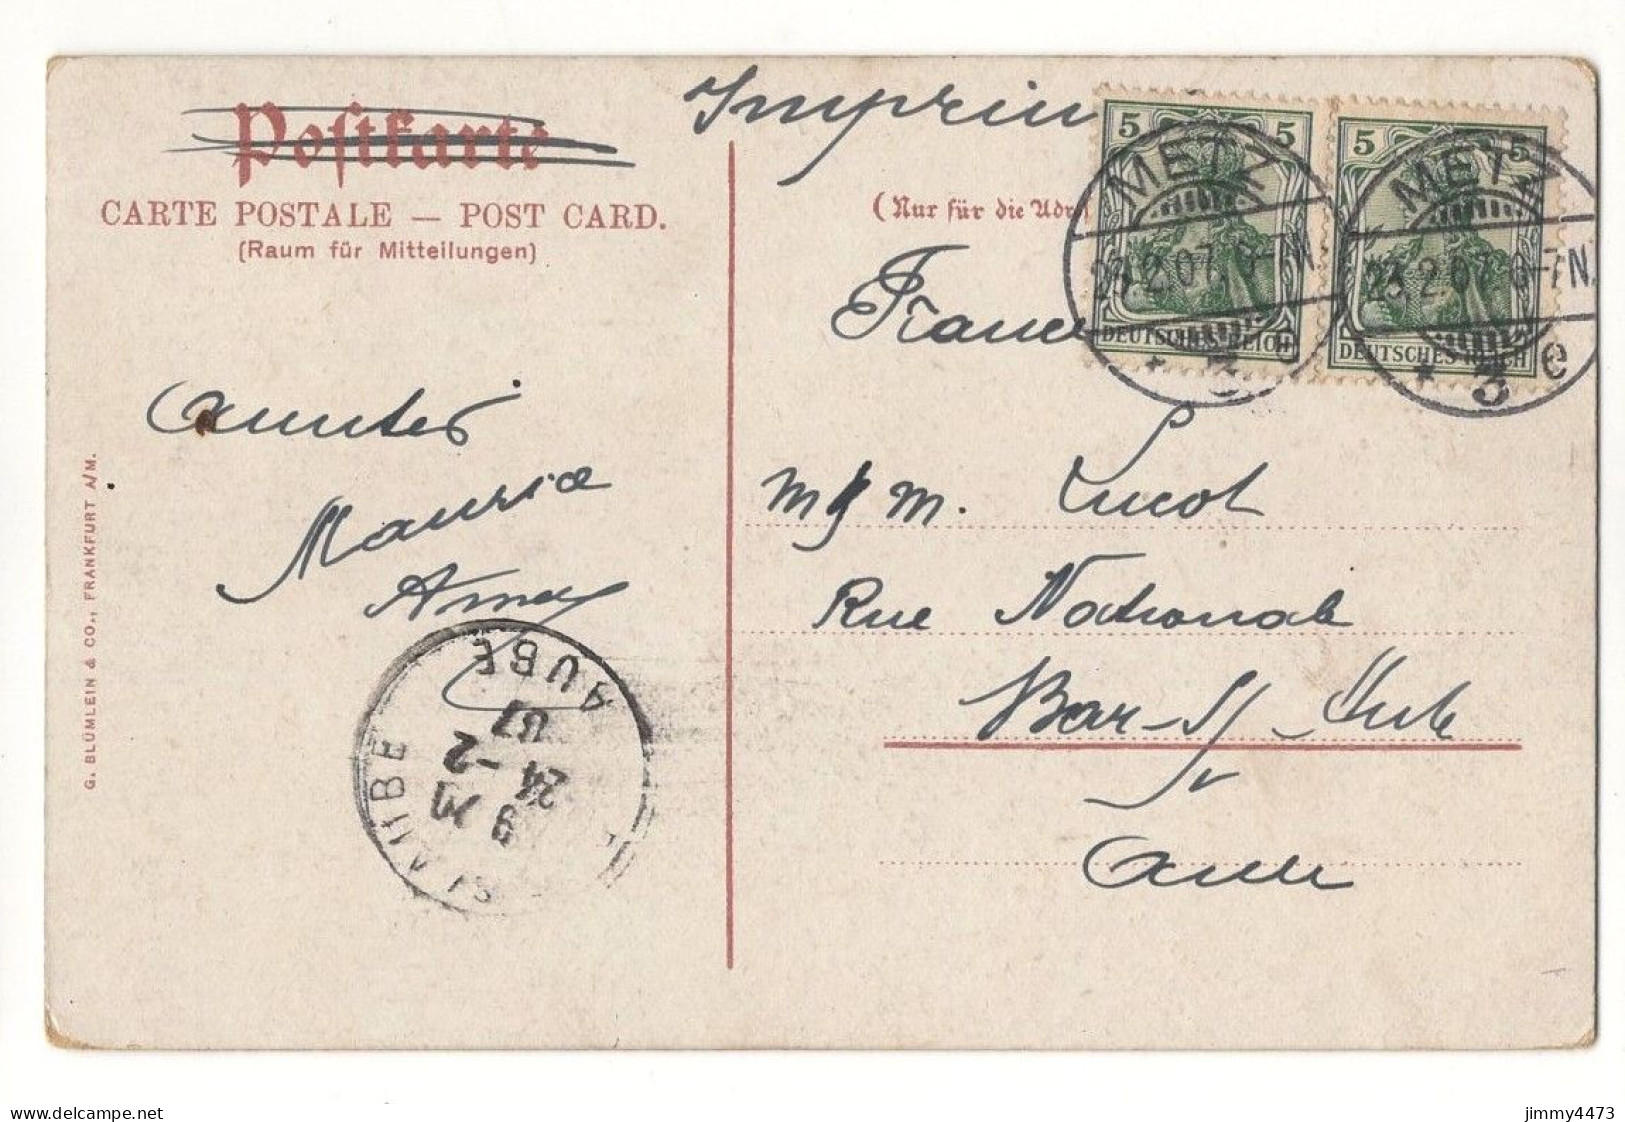 Postkarte
CARTE POSTALE — POST CARD.
(Raum für Mitteilungen)
Amities
Maurice
G. BLÜMLEIN & CO., FRANKFURT A/M.
AUBE
24 -2
07
Imprim
(Nur für die Adr
France
5 5
DEUTSCHES REICH
METZ
23.2.07. 6-7N.
* 3
5 5
DEUTSCHES REICH
METZ
23.2.07. 6-7N.
* 3 e
M & M. Lucot
Rue Nationale
Bar-s/-Aube
Aube
delcampe.net
jimmy4473